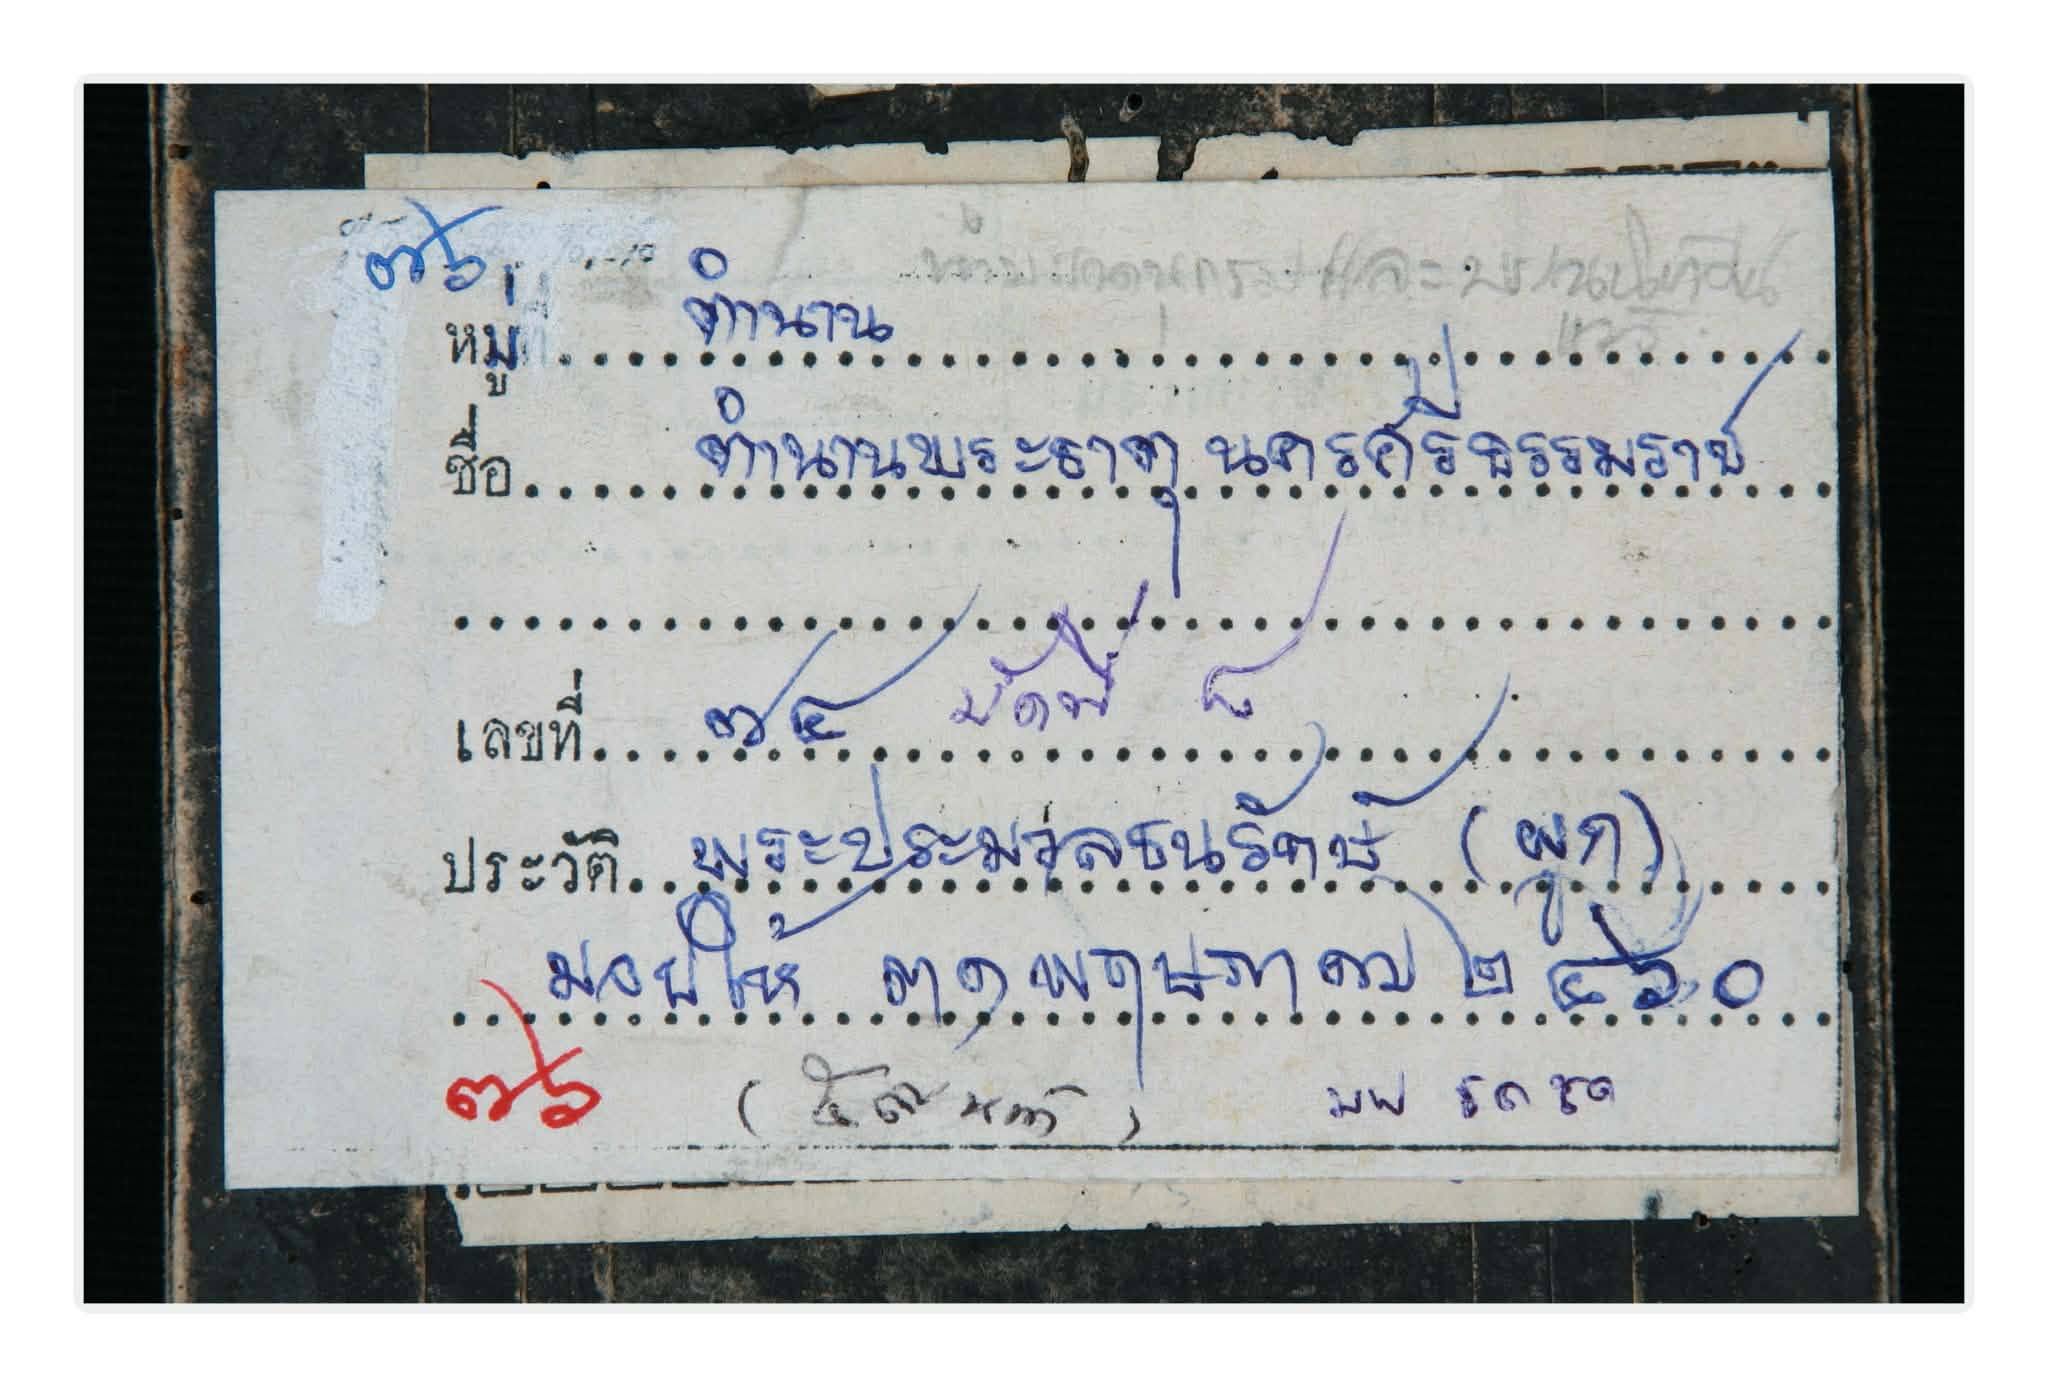 ๗๖
หมู่ ตำนาน
ชื่อ ตำนานพระธาตุนครศรีธรรมราช
เลขที่ ๗๔ มัดที่ ๘
ประวัติ พระประมวลธนรักษ์ (ผูก)
มอบให้ ๓๑ พฤษภาคม ๒๔๖๐
๗๖